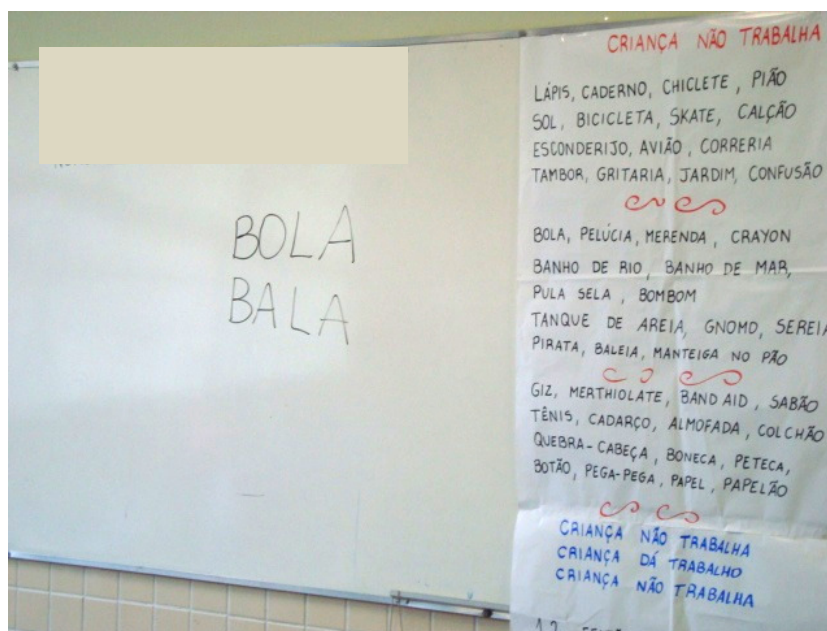 BOLA
BALA
CRIANÇA NÃO TRABALHA
LÁPIS, CADERNO, CHICLETE, PIÃO
SOL, BICICLETA, SKATE, CALÇÃO
ESCONDERIJO, AVIÃO, CORRERIA
TAMBOR, GRITARIA, JARDIM, CONFUSÃO
BOLA, PELÚCIA, MERENDA, CRAYON
BANHO DE RIO, BANHO DE MAR,
PULA SELA, BOMBOM
TANQUE DE AREIA, GNOMO, SEREIA
PIRATA, BALEIA, MANTEIGA NO PÃO
GIZ, MERTHIOLATE, BAND AID, SABÃO
TÊNIS, CADARÇO, ALMOFADA, COLCHÃO
QUEBRA-CABEÇA, BONECA, PETECA,
BOTÃO, PEGA-PEGA, PAPEL, PAPELÃO
CRIANÇA NÃO TRABALHA
CRIANÇA DÁ TRABALHO
CRIANÇA NÃO TRABALHA